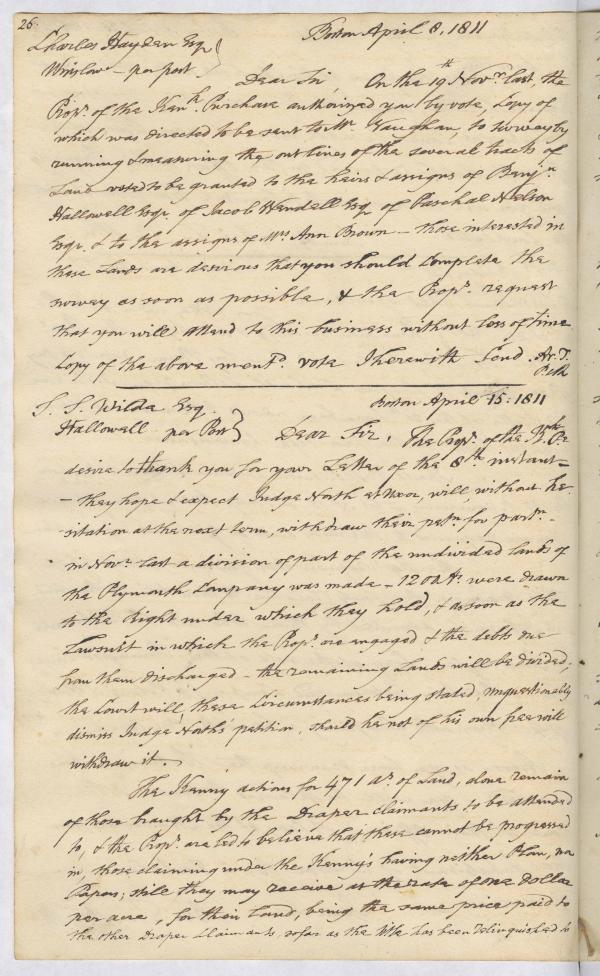 26.
Boston April 8, 1811
Charles Hayden Esq
Winslow - per post }
Dear Sir, On the 19th Novr last, the
Propr. of the Kenk Purchase authorized you by vote, Copy of
which was directed to be sent to Mr. Vaughan, to survey by
running & measuring the outlines of the several tracts of
Land voted to be granted to the heirs & assigns of Benjn.
Hallowell Esqr. of Jacob Wendell Esq of Paschal Nelson
Esqr. & to the assigns of Mrs Ann Brown - those interested in
these Lands are desirous that you should complete the
survey as soon as possible, & the Propr. request
that you will attend to this business without loss of time
Copy of the above mentd. vote I herewith send. Ar. T.
Boston April 15: 1811
S. S. Wilde Esq.
Hallowell per Post }
Dear Sir, The Propr. of the K. Pe
desire to thank you for your Letter of the 8th instant -
- they hope & expect Judge North et uxor, will, without he-
sitation at the next term, withdraw their petn. for partn.
in Novr last a division of part of the undivided lands of
the Plymouth Company was made - 1200 As. were drawn
to the Right under which they hold, & as soon as the
Lawsuit in which the Propr. are engaged & the debts due
from them discharged - the remaining Lands will be divided.
the Court will, these Circumstances being stated, unquestionably
dismiss Judge North's petition, should he not of his own free will
withdraw it.
The Kenny actions for 471 As. of Land, alone remain
of those brought by the Draper claimants to be attended
to, & the Propr. are led to believe that these cannot be progressed
in, those claiming under the Kenny's having neither Plan, nor
Papers; still they may receive at the rate of one Dollar
per acre, for their Land, being the same price paid to
the other Draper Claimants, so far as the title has been relinquished to